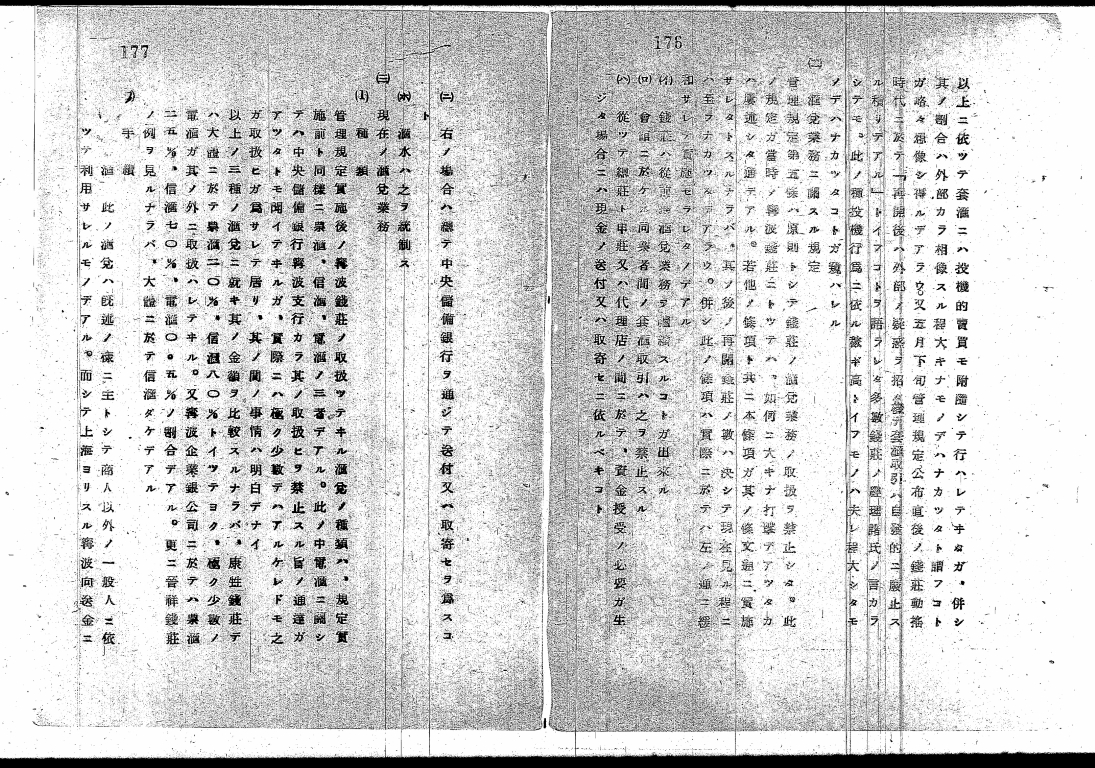 176
以上ニ依ツテ套滙ニハ投機的賣買モ附隨シテ行ハレテヰタガ、併シ
其ノ割合ハ外部カラ想像スル程大キナモノデハナカツタト謂フコト
ガ略々想像シ得ルデアラウ。又五月下旬管理規定公布直後ノ錢莊動搖
時代ニ於テ「再開後ハ外部ノ疑惑ヲ招ク套滙取引ハ自發的ニ廢止ス
ル積リデアル」トイフコトヲ語ラレタ多數錢莊ノ經理諸氏ノ言カラ
シテモ、此ノ種投機行爲ニ依ル數ギ高トイフモノハ夫レ程大シタモ
ノデハナカツタコトガ窺ハレル
(二) 滙兌業務ニ關スル規定
管理規定第五條ハ原則トシテ錢莊ノ滙兌業務ノ取扱ヲ禁止シタ。此
ノ規定ガ當時ノ寗波錢莊ニトツテハ、如何ニ大キナ打擊デアツタカ
ハ屢述シタ通デアル。若他ノ條項ト共ニ本條項ガ其ノ條文通ニ實施
サレタトスルナラバ、其ノ後ノ再開錢莊ノ數ハ決シテ現在見ル程ニ
ハ至ラナカツタデアラウ。併シ此ノ條項ハ實際ニ於テハ左ノ通ニ
サレテ實施セラレタノデアル
(イ) 錢莊ハ從前滙兌業務ヲ スルコトガ出來ル
(ロ) 會員ニ於ケル同業者間ノ套滙取引ハ之ヲ禁止スル
(ハ) 從ツテ總莊ト申莊又ハ代理店ノ間ニ於テ、資金授受ノ必要ガ生
ジタ場合ニハ現金ノ送付又ハ取寄セニ依ルベキコト
177
(ニ) 右ノ場合ハ總テ中央儲備銀行ヲ通ジテ送付又ハ取寄セヲ爲スコ
ト
(ホ) 滙水ハ之ヲ統制ス
(三) 現在ノ滙兌業務
(1) 種類
管理規定實施後ノ寗波錢莊ノ取扱ツテヰル滙兌ノ種類ハ、規定實
施前ト同樣ニ票滙、信滙、電滙ノ三者デアル。此ノ中電滙ニ關シ
テハ中央儲備銀行寗波支行カラ其ノ取扱ヒヲ禁止スル旨ノ通達ガ
アツタトモ聞イテヰルガ、實際ニハ極ク少數デハアルケレドモ之
ガ取扱ヒガ爲サレテ居リ、其ノ間ノ事情ハ明白デナイ
以上ノ三種ノ滙兌ニ就キ其ノ金額ヲ比較スルナラバ、康甡錢莊デ
ハ大體ニ於テ票滙二〇%、信滙八〇%トイツテヨク、極ク少數ノ
電滙ガ其ノ外ニ取扱ハレテヰル。又寗波企業銀公司ニ於テハ票滙
二五%、信滙七〇%、電滙〇・五%ノ割合デアル。更ニ晉祥錢莊
ノ例ヲ見ルナラバ、大體ニ於テ信滙ダケデアル
手續
滙 此ノ滙兌ハ既述ノ樣ニ主トシテ商人以外ノ一般人ニ依
ツテ利用サレルモノデアル。而シテ上海ヨリスル寗波向送金ニ